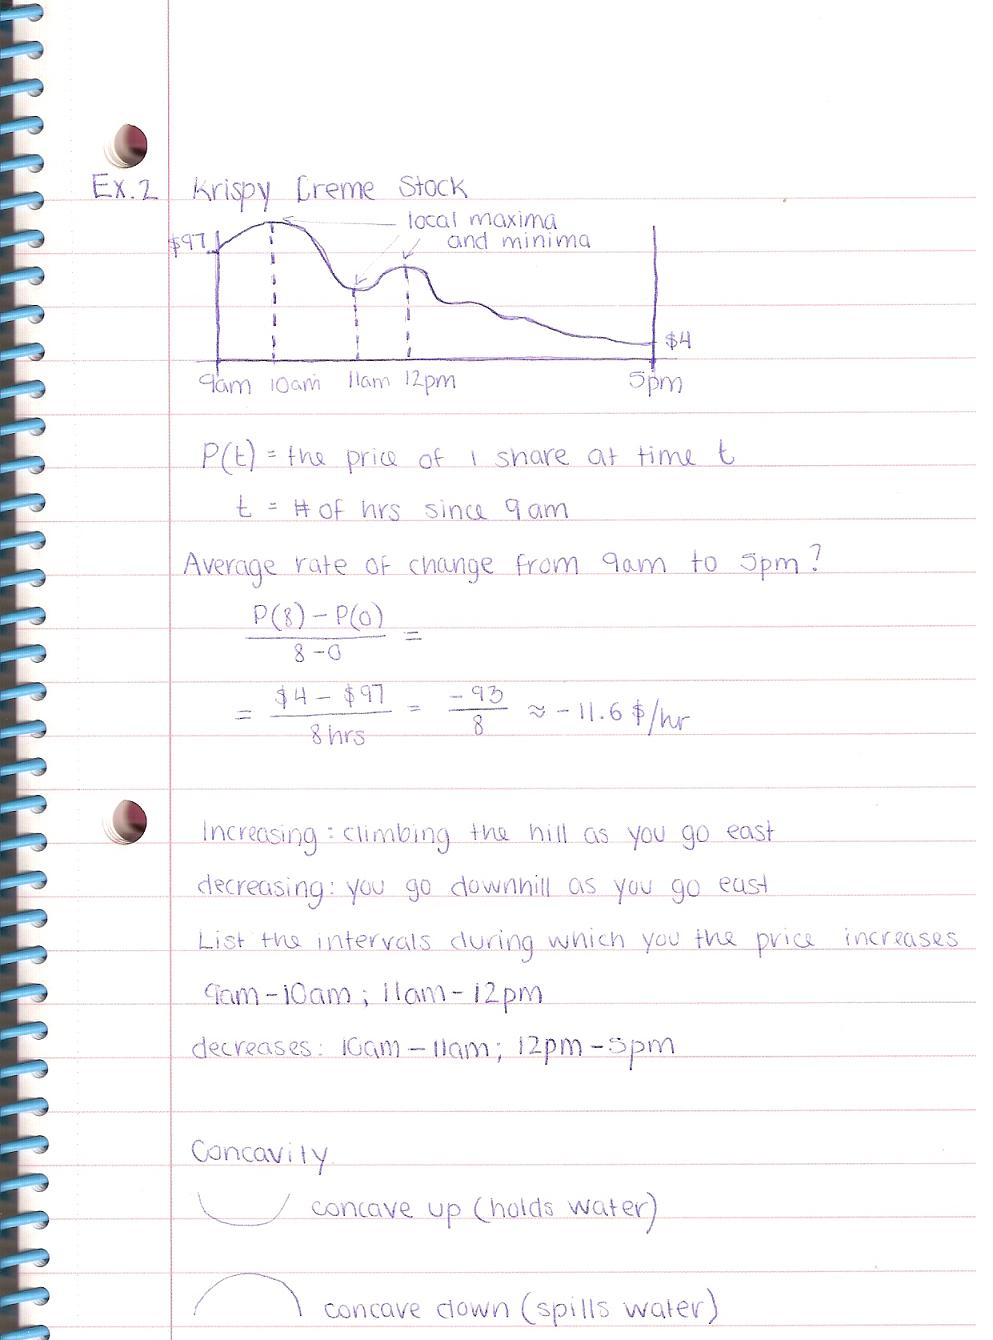 Ex.2 Krispy Creme Stock
local maxima
and minima
$97
$4
9am 10am 11am 12pm 5pm
P(t) = the price of 1 share at time t
t = # of hrs since 9am
Average rate of change from 9am to 5pm?
P(8) - P(0)
8 - 0
=
= $4 - $97 = -93 ≈ -11.6 $/hr
8 hrs 8
Increasing: climbing the hill as you go east
decreasing: you go downhill as you go east
List the intervals during which you the price increases
9am - 10am; 11am - 12pm
decreases: 10am - 11am; 12pm - 5pm
Concavity
concave up (holds water)
concave down (spills water)